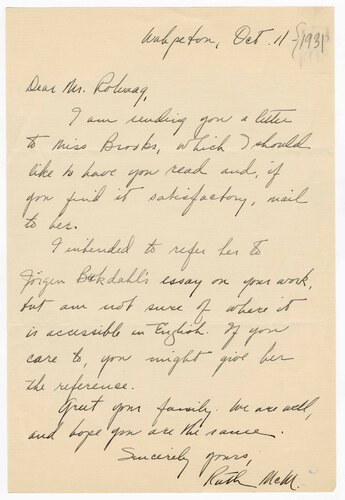 Wahpeton, Oct. 11 - 1931
Dear Mr. Rolvaag,
I am sending you a letter
to Miss Brooks, which I should
like to have you read and, if
you find it satisfactory, mail
to her.
I intended to refer her to
Jörgen Bukdahl's essay on your work,
but am not sure of where it
is accessible in English. If you
care to, you might give her
the reference.
Greet your family. We are well,
and hope you are the same.
Sincerely yours,
Ruth McM.